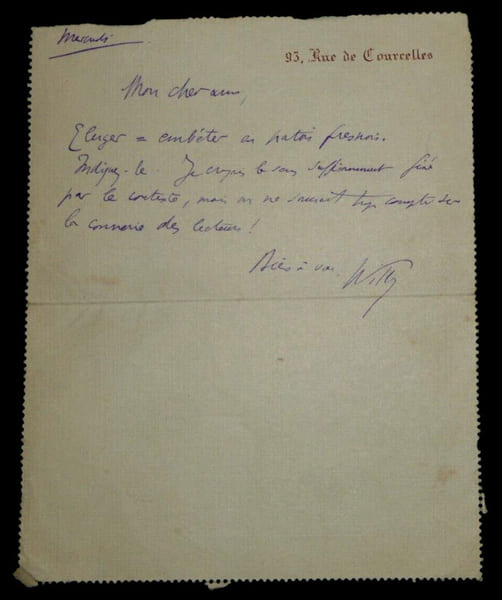 Mercredi
93, Rue de Courcelles
Mon cher ami,
Eluger = embêter en patois fresnois.
Indiquez-le. Je croyais le sens suffisamment fixé
par le contexte, mais on ne saurait trop compter sur
la connerie des lecteurs !
Bien à vous, Willy